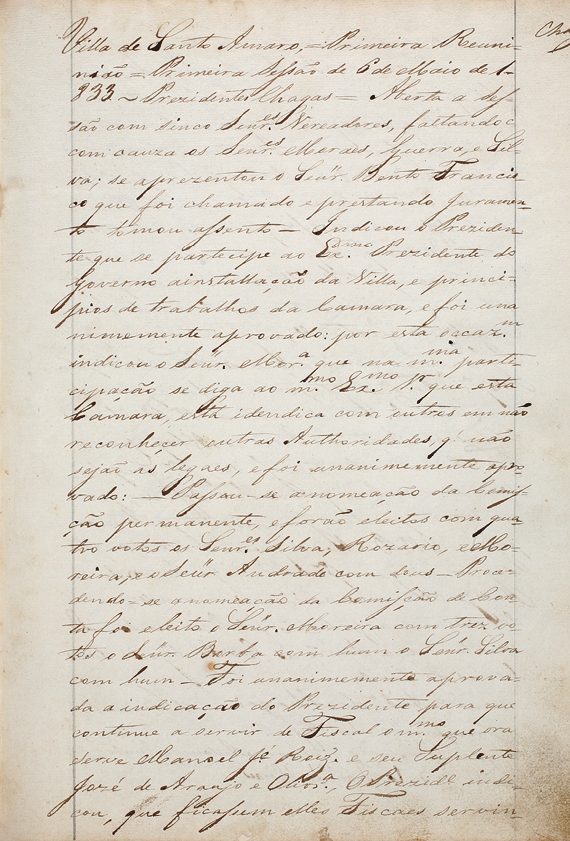 Villa de Santo Amaro, = Primeira Reuni-
nião = Primeira Sessão de 6 de Maio de 1-
833 ~ Prezidente Chagas = Aberta a Ses-
são com sinco Senr.es Vereadores, faltando
com cauza os Senr.es Moraes, Guerra, e Sil-
va; se aprezentou o Seür. Bento Francis-
co que foi chamado e prestando Juramen-
to tomou assento — Indicou o Preziden-
te que se participe ao Ex.mo Prezidente do
Governo ainstallação da Villa, e princi-
pios de trabalhos da Camara, e foi una
nimemente aprovado: por esta ocaz.m
indicou o Seür. Mor.a que na m.ma parti-
cipação se diga ao m.mo Ex.mo Sr. que esta
Camara, está idendica com outras em não
reconhecer outras Authoridades, q' não
sejaõ as legaes, e foi unanimemente apro-
vado: — Passou-se anomeação da Comis-
ção permanente, e forão eleitos com qua
tro votos os Senr.es Silva, Rozario, e Mo-
reira, e o Seür Andrade com deus — Proce-
dendo-se anomeação da Comissão de Con
ta foi eleito o Seür. Moreira com trez vo
tos o Seür. Borba com hum o Seür. Silva
com hum — Foi unanimemente aprova-
da a indicação do Prezidente para que
continue a servir de Fiscal o m.mo que ora
serve Manoel Je. Roiz. e seu Suplente
José de Araujo e Oliv.a, O Prezid.e indi-
cou, que ficassem elles Fiscaes servin-